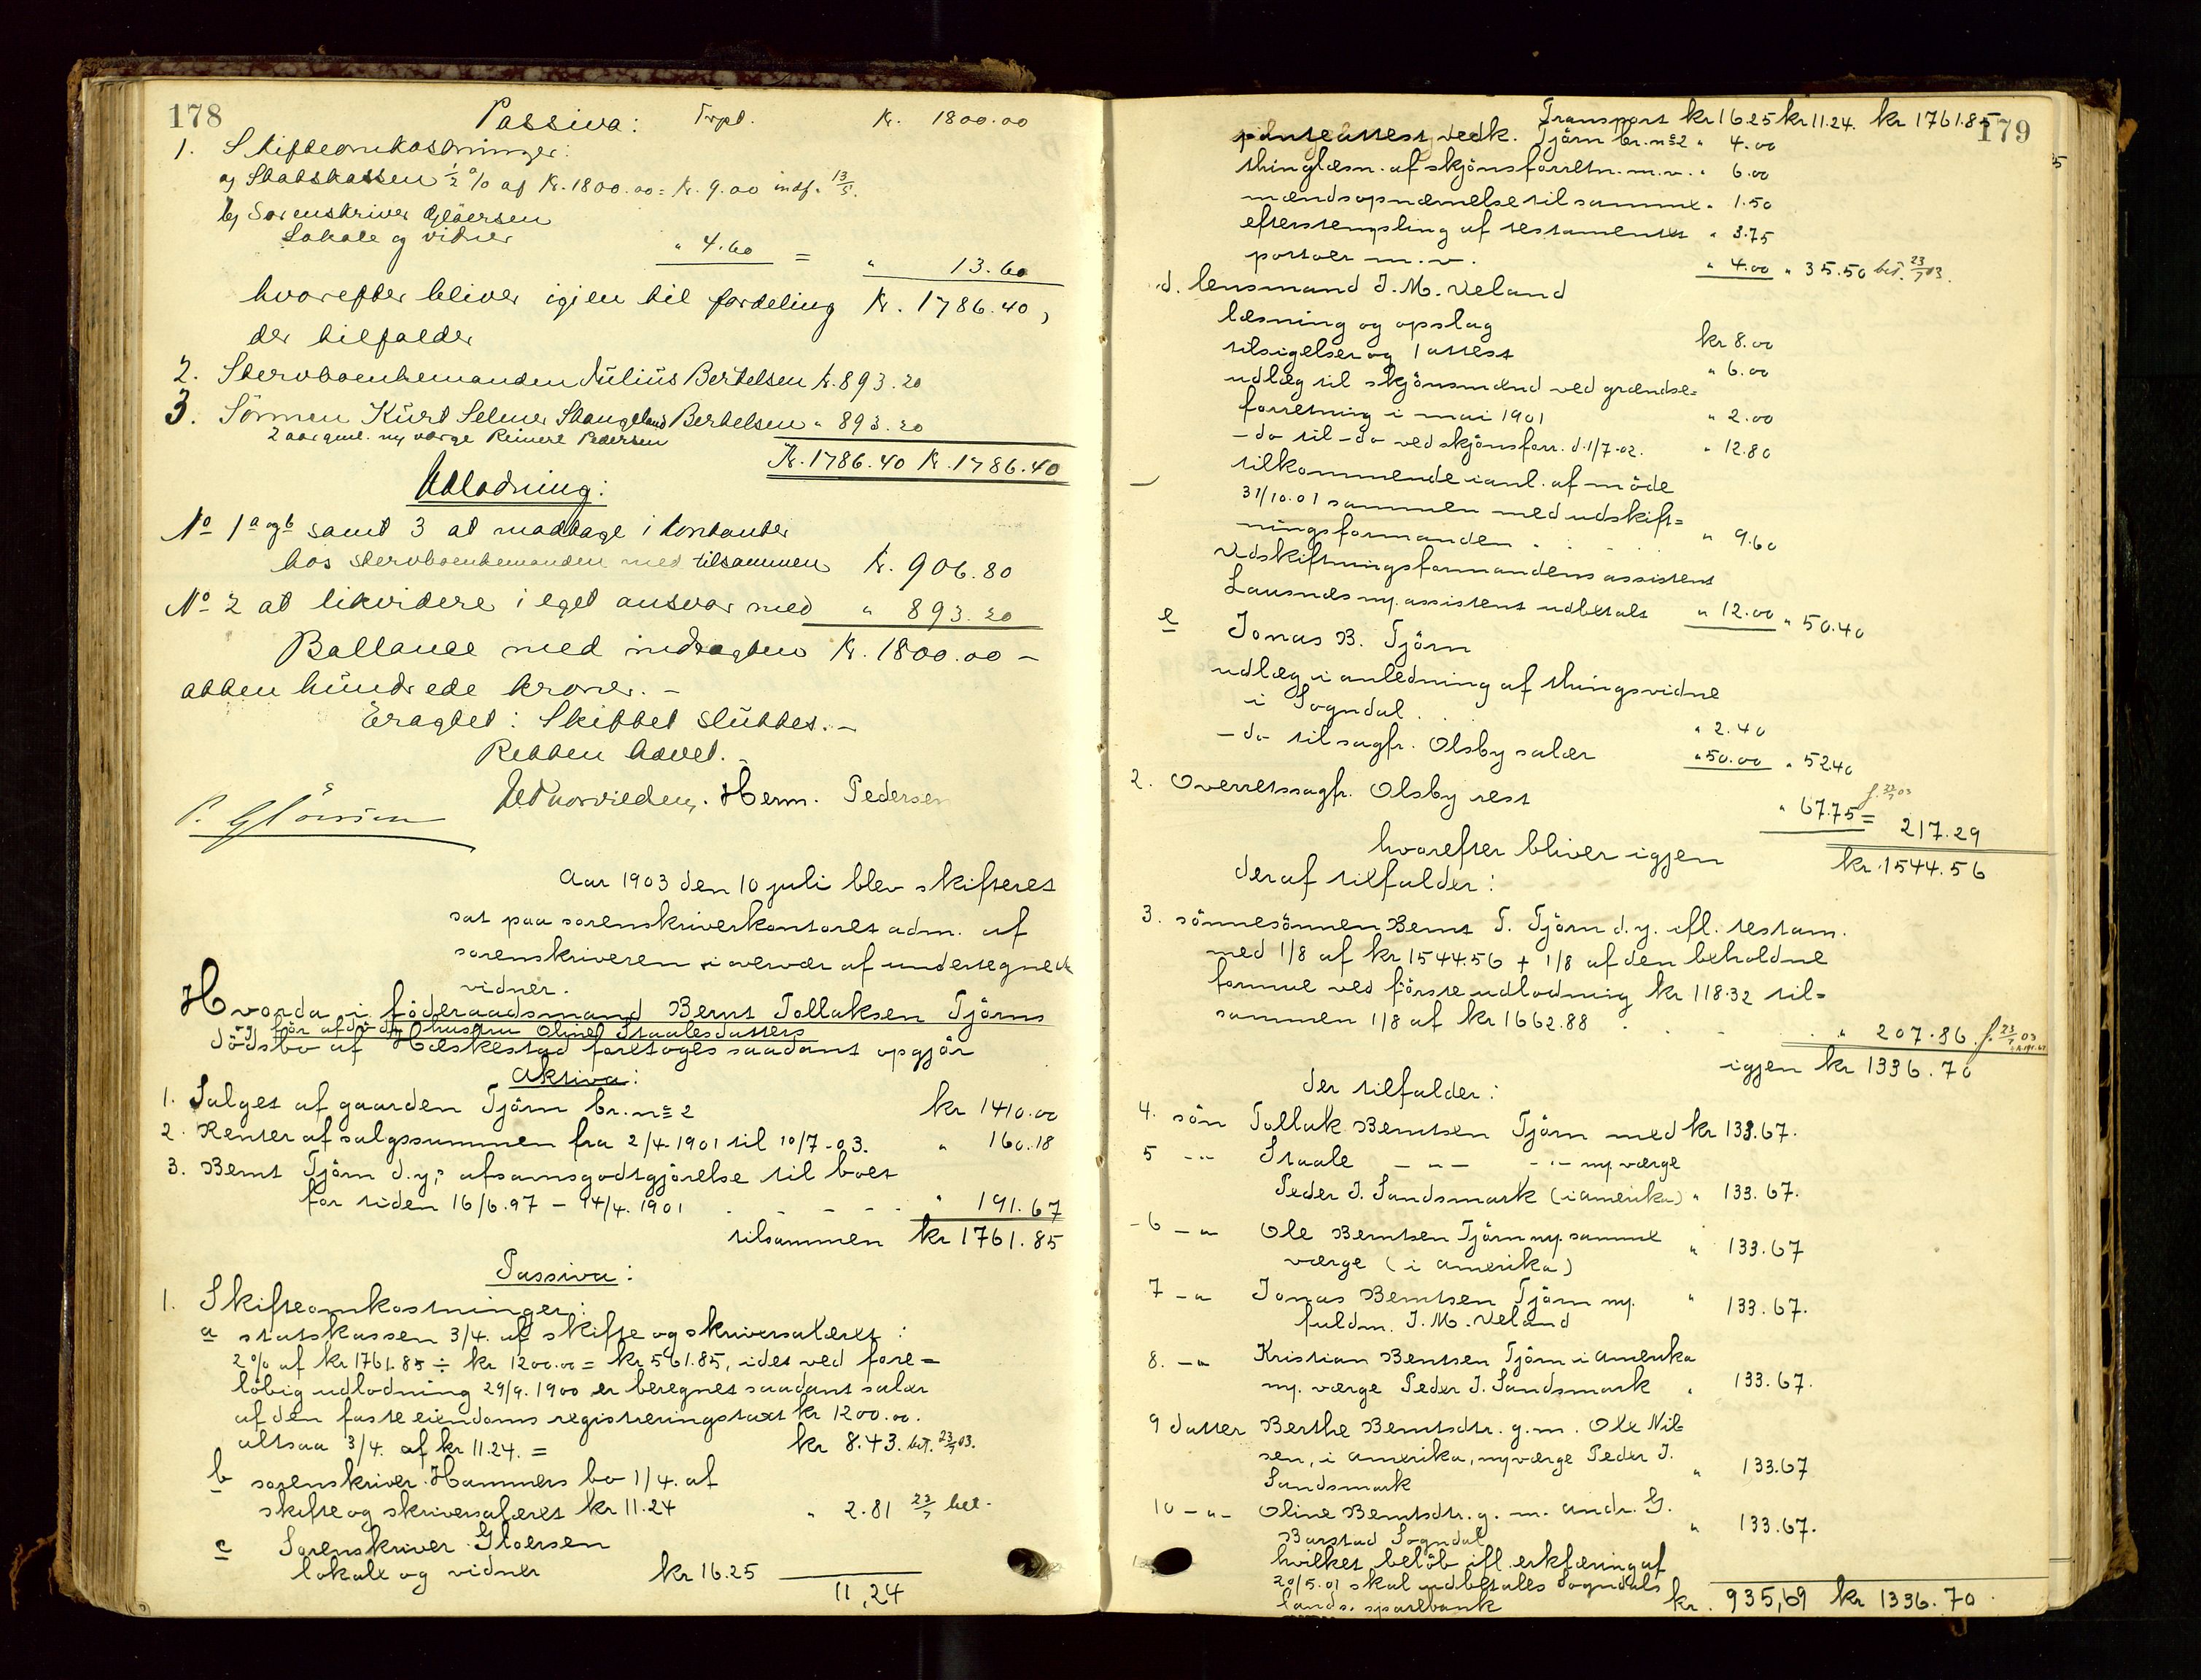 178
Passiva: Trpt. Kr. 1800.00
1. Skifteomkostninger:
a) Statskassen 1/2 % af Kr. 1800.00 = Kr. 9.00 indf. 13/5.
b) Sorenskriver Gløersen
Lokale og vidner " 4.60 = " 13.60
hvorefter bliver igjen til fordeling Kr. 1786.40,
der tilfalder
2. Stervboenkemanden Julius Bertelsen Kr. 893.20
3. Sønnen Kurt Selmer Stangeland Bertelsen " 893.20
2 aar gml. my. værge Reinert Pedersen
Kr. 1786.40 Kr. 1786.40
Udlodning:
No 1 a og b samt 3 at modtage i kontanter
hos stervboenkemanden med tilsammen Kr. 906.80
No 2 at likvidere i eget ansvar med " 893.20
Ballance med indtægten Kr. 1800.00 –
atten hundrede kroner. –
Eragtet: Skiftet sluttes. –
Retten hævet. –
Herm. Pedersen
P. Gløersen
Aar 1903 den 10 juli blev skifteret
sat paa sorenskriverkontoret adm. af
sorenskriveren i overvær af undertegnede
vidner.
Hvorda i föderaadsmand Bernt Tollaksen Tjörns
og för afdöde hustru Oline Staalesdatters
dödsbo af Hæskestad foretoges saadant opgjör
Aktiva:
1. Salget af gaarden Tjörn br. no 2 kr 1410.00
2. Renter af salgssummen fra 2/4. 1901 til 10/7-03. " 160.18
3. Bernt Tjörn d.y.; afsavnsgodtgjörelse til boet
for tiden 16/6.97 – 14/4. 1901 - - - - - " 191.67
tilsammen kr 1761.85
Passiva:
1. Skifteomkostninger:
a statskassen 3/4. af skifte og skriversalæret:
2% af kr 1761.85 ÷ kr 1200.00 = kr 561.85, idet ved fore=
löbig udlodning 29/9. 1900 er beregnet saadant salær
af den faste eiendoms registreringstaxt kr 1200.00.
altsaa 3/4. af kr 11.24. = kr 8.43. bet. 23/7 03.
b sorenskriver Hammers bo 1/4. af
skifte og skriversalæret kr 11.24 " 2.81 23/7 bet.
c Sorenskriver Gloersen
lokale og vidner kr 16.25 11,24
179
Transport kr 16.25 kr 11.24. kr 1761.85
panteattest vedk. Tjörn br. no 2 " 4.00
thinglæsn. af skjönsforretn. m.v. " 6.00
mændsopnævnelse til samme " 1.50
efterstempling af testamentet " 3.75
portoer m.v. " 4.00 " 35.50 bet. 23/7 03.
d. lensmand J.M. Veland
læsning og opslag kr 8.00
tilsigelser og 1 attest " 6.00
udlæg til skjönsmænd ved grændse=
forretning i mai 1901 " 2.00
– do til – do ved skjönsforr. d. 1/7-02. " 12.80
tilkommende i anl. af möde
31/10.01 sammen med udskift=
ningsformanden . . . " 9.60
Udskiftningsformandens assistent
Lausnes my. assistent udbetalt " 12.00 " 50.40
e Jonas B. Tjörn
udlæg i anledning af thingsvidne
i Sogndal . . " 2.40
– do til sagfr. Olsby salær " 50.00 " 52.40
2. Overretssagfr. Olsby rest " 67.75 = f. 23/7 03 217.29
hvorefter bliver igjen kr. 1544.56
deraf tilfalder:
3. sönnesönnen Bernt T. Tjörn d.y. ifl. testam.
med 1/8 af kr 1544.56 + 1/8 af den beholdne
formue ved förste udlodning kr 118.32 til=
sammen 1/8 af kr 1662.88 . . . " 207.86 f. 23/7 03
igjen kr 1336.70
der tilfalder:
4. sön Tollak Berntsen Tjörn med kr 133.67.
5 -"- Staale – " – -"- my. værge
Peder J. Sandsmark (i amerika) " 133.67.
6 – " Ole Berntsen Tjörn my. samme
værge (i amerika) " 133.67
7 – " Jonas Berntsen Tjörn my.
fuldm. J.M. Veland " 133.67.
8. – " Kristian Bentsen Tjörn i amerika
my. værge Peder J. Sandsmark " 133.67.
9 datter Berthe Berntsdtr. g.m. Ole Nil=
sen, i amerika, my værge Peder J.
Sandsmark " 133.67
10 – " – Oline Berntsdtr. g. m. andr. G.
Barstad Sogndal " 133.67.
hvilket belöb ifl. erklæring af
20/5.01 skal udbetales Sogndals
lands. sparebank kr. 935,69 kr 1336.70